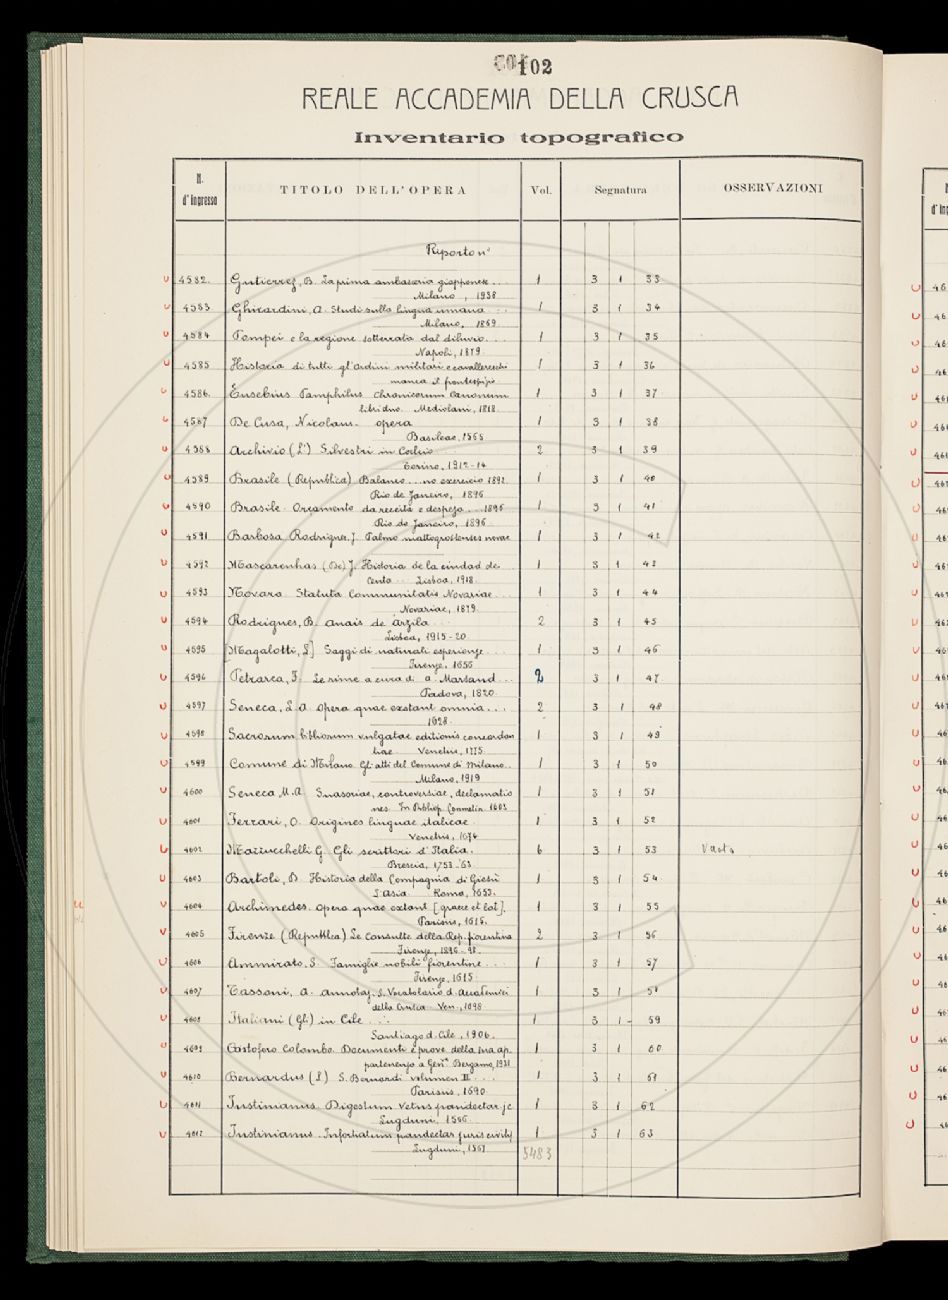 102
REALE ACCADEMIA DELLA CRUSCA
Inventario topografico
N. d'ingresso TITOLO DELL'OPERA Vol. Segnatura OSSERVAZIONI
Riporto n°
4582. Gutierrez, B. La prima ambasceria giapponese... 1 3 1 33
Milano, 1938
4583 Ghirardini, A. Studi sulla lingua umana... 1 3 1 34
Milano, 1869
4584 Pompei e la regione sotterrata dal diluvio... 1 3 1 35
Napoli, 1879.
4585 Historia di tutti gl'ordini militari e cavallereschi 1 3 1 36
manca il frontespizio
4586. Eusebius Pamphilus. Chronicorum Canonum 1 3 1 37
libri duo. Mediolani, 1818.
4587 De Cusa, Nicolaus. opera 1 3 1 38
Basileae, 1565
4588 Archivio (L') Silvestri in Calcio 2 3 1 39
Torino, 1912-14
4589 Brasile (Republica) Balanco... no exercicio 1892. 1 3 1 40
Rio de Janeiro, 1896
4590 Brasile. Orçamento da receita e despeza...1896 1 3 1 41
Rio de Janeiro, 1896
4591 Barbosa Rodrigues, J. Palmae mattogrossenses novae 1 3 1 42
4592 Mascarenhas (De) J. Historia de la ciudad de 1 3 1 43
Ceuta... Lisboa, 1918.
4593 Novara. Statuta Communitatis Novariae... 1 3 1 44
Novariae, 1879.
4594 Rodrigues, B. Anais de Arzila... 2 3 1 45
Lisboa, 1915-20.
4595 [Magalotti, L] Saggi di naturali esperienze... 1 3 1 46
Firenze, 1666
4596 Petrarca, F. Le rime a cura di A. Marsand... 2 3 1 47
Padova, 1820.
4597 Seneca, L. A. Opera quae exstant omnia... 2 3 1 48
1628.
4598 Sacrorum bibliorum vulgatae editionis concordan 1 3 1 49
tiae. Venetiis, 1775.
4599 Comune di Milano. Gli atti del Comune di Milano.. 1 3 1 50
Milano, 1919
4600 Seneca M. A. Suasoriae, controversiae, declamatio 1 3 1 51
nes. In Bibliop. Commelin. 1603
4601 Ferrari, O. Origines linguae italicae. 1 3 1 52
Venetiis, 1676
4602 Mazzucchelli G. Gli scrittori d'Italia. 6 3 1 53
Brescia, 1753-'63.
4603 Bartoli, D. Historia della Compagnia di Giesù 1 3 1 54
L'Asia. Roma, 1653.
4604 Archimedes. Opera quae extant [graece et lat]. 1 3 1 55
Parisiis, 1615.
4605 Firenze (Repubblica) Le Consulte della Rep. fiorentina 2 3 1 56
Firenze, 1896-98.
4606 Ammirato, S. Famiglie nobili fiorentine... 1 3 1 57
Firenze, 1615.
4607 Tassoni, A. Annotaz. s. Vocabolario d. Accademici 1 3 1 58
della Crusca. Ven., 1698
4608 Italiani (Gli) in Cile... 1 3 1 - 59
Santiago d. Cile, 1906.
4609 Cristoforo Colombo. Documenti e prove della sua ap. 1 3 1 60
partenenza a Genª. Bergamo, 1931
4610 Bernardus (S.) S. Bernardi volumen II... 1 3 1 61
Parisiis, 1690.
4611 Justinianus. Digestum Vetus pandectar. jc 1 3 1 62
Lugduni, 1566.
4612 Justinianus. Infortiatum pandectar. juris civilis 1 3 1 63
Lugduni, 1567
5483